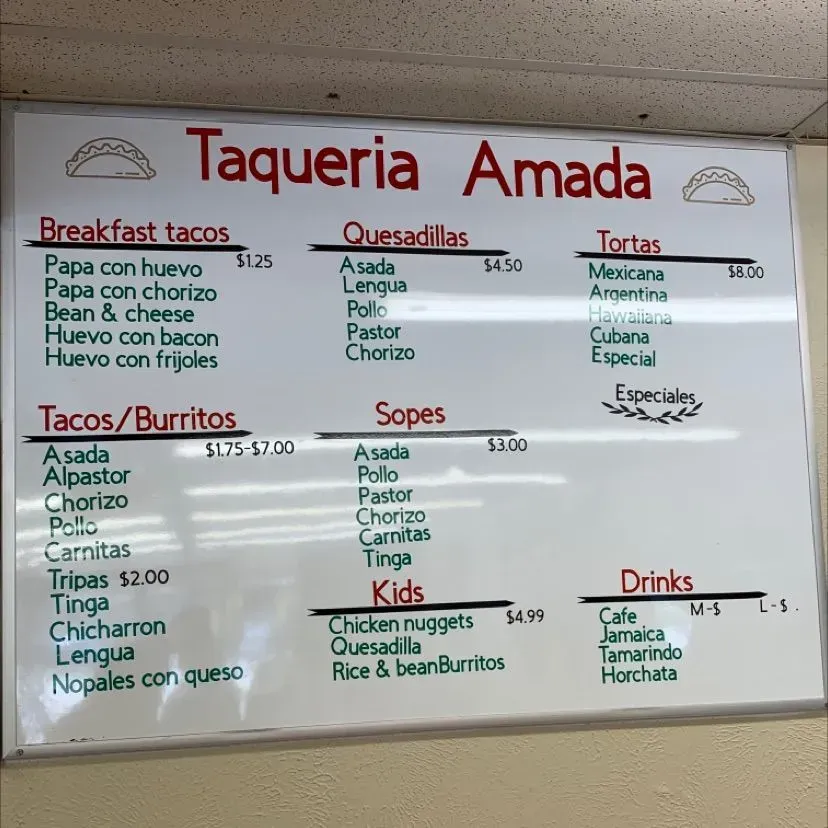 Taqueria Amada
Breakfast tacos
$1.25
Papa con huevo
Papa con chorizo
Bean & cheese
Huevo con bacon
Huevo con frijoles
Quesadillas
$4.50
Asada
Lengua
Pollo
Pastor
Chorizo
Tortas
$8.00
Mexicana
Argentina
Hawaiiana
Cubana
Especial
Especiales
Tacos/Burritos
$1.75-$7.00
Asada
Alpastor
Chorizo
Pollo
Carnitas
Tripas $2.00
Tinga
Chicharron
Lengua
Nopales con queso
Sopes
$3.00
Asada
Pollo
Pastor
Chorizo
Carnitas
Tinga
Kids
$4.99
Chicken nuggets
Quesadilla
Rice & beanBurritos
Drinks
M-$ L-$ .
Cafe
Jamaica
Tamarindo
Horchata